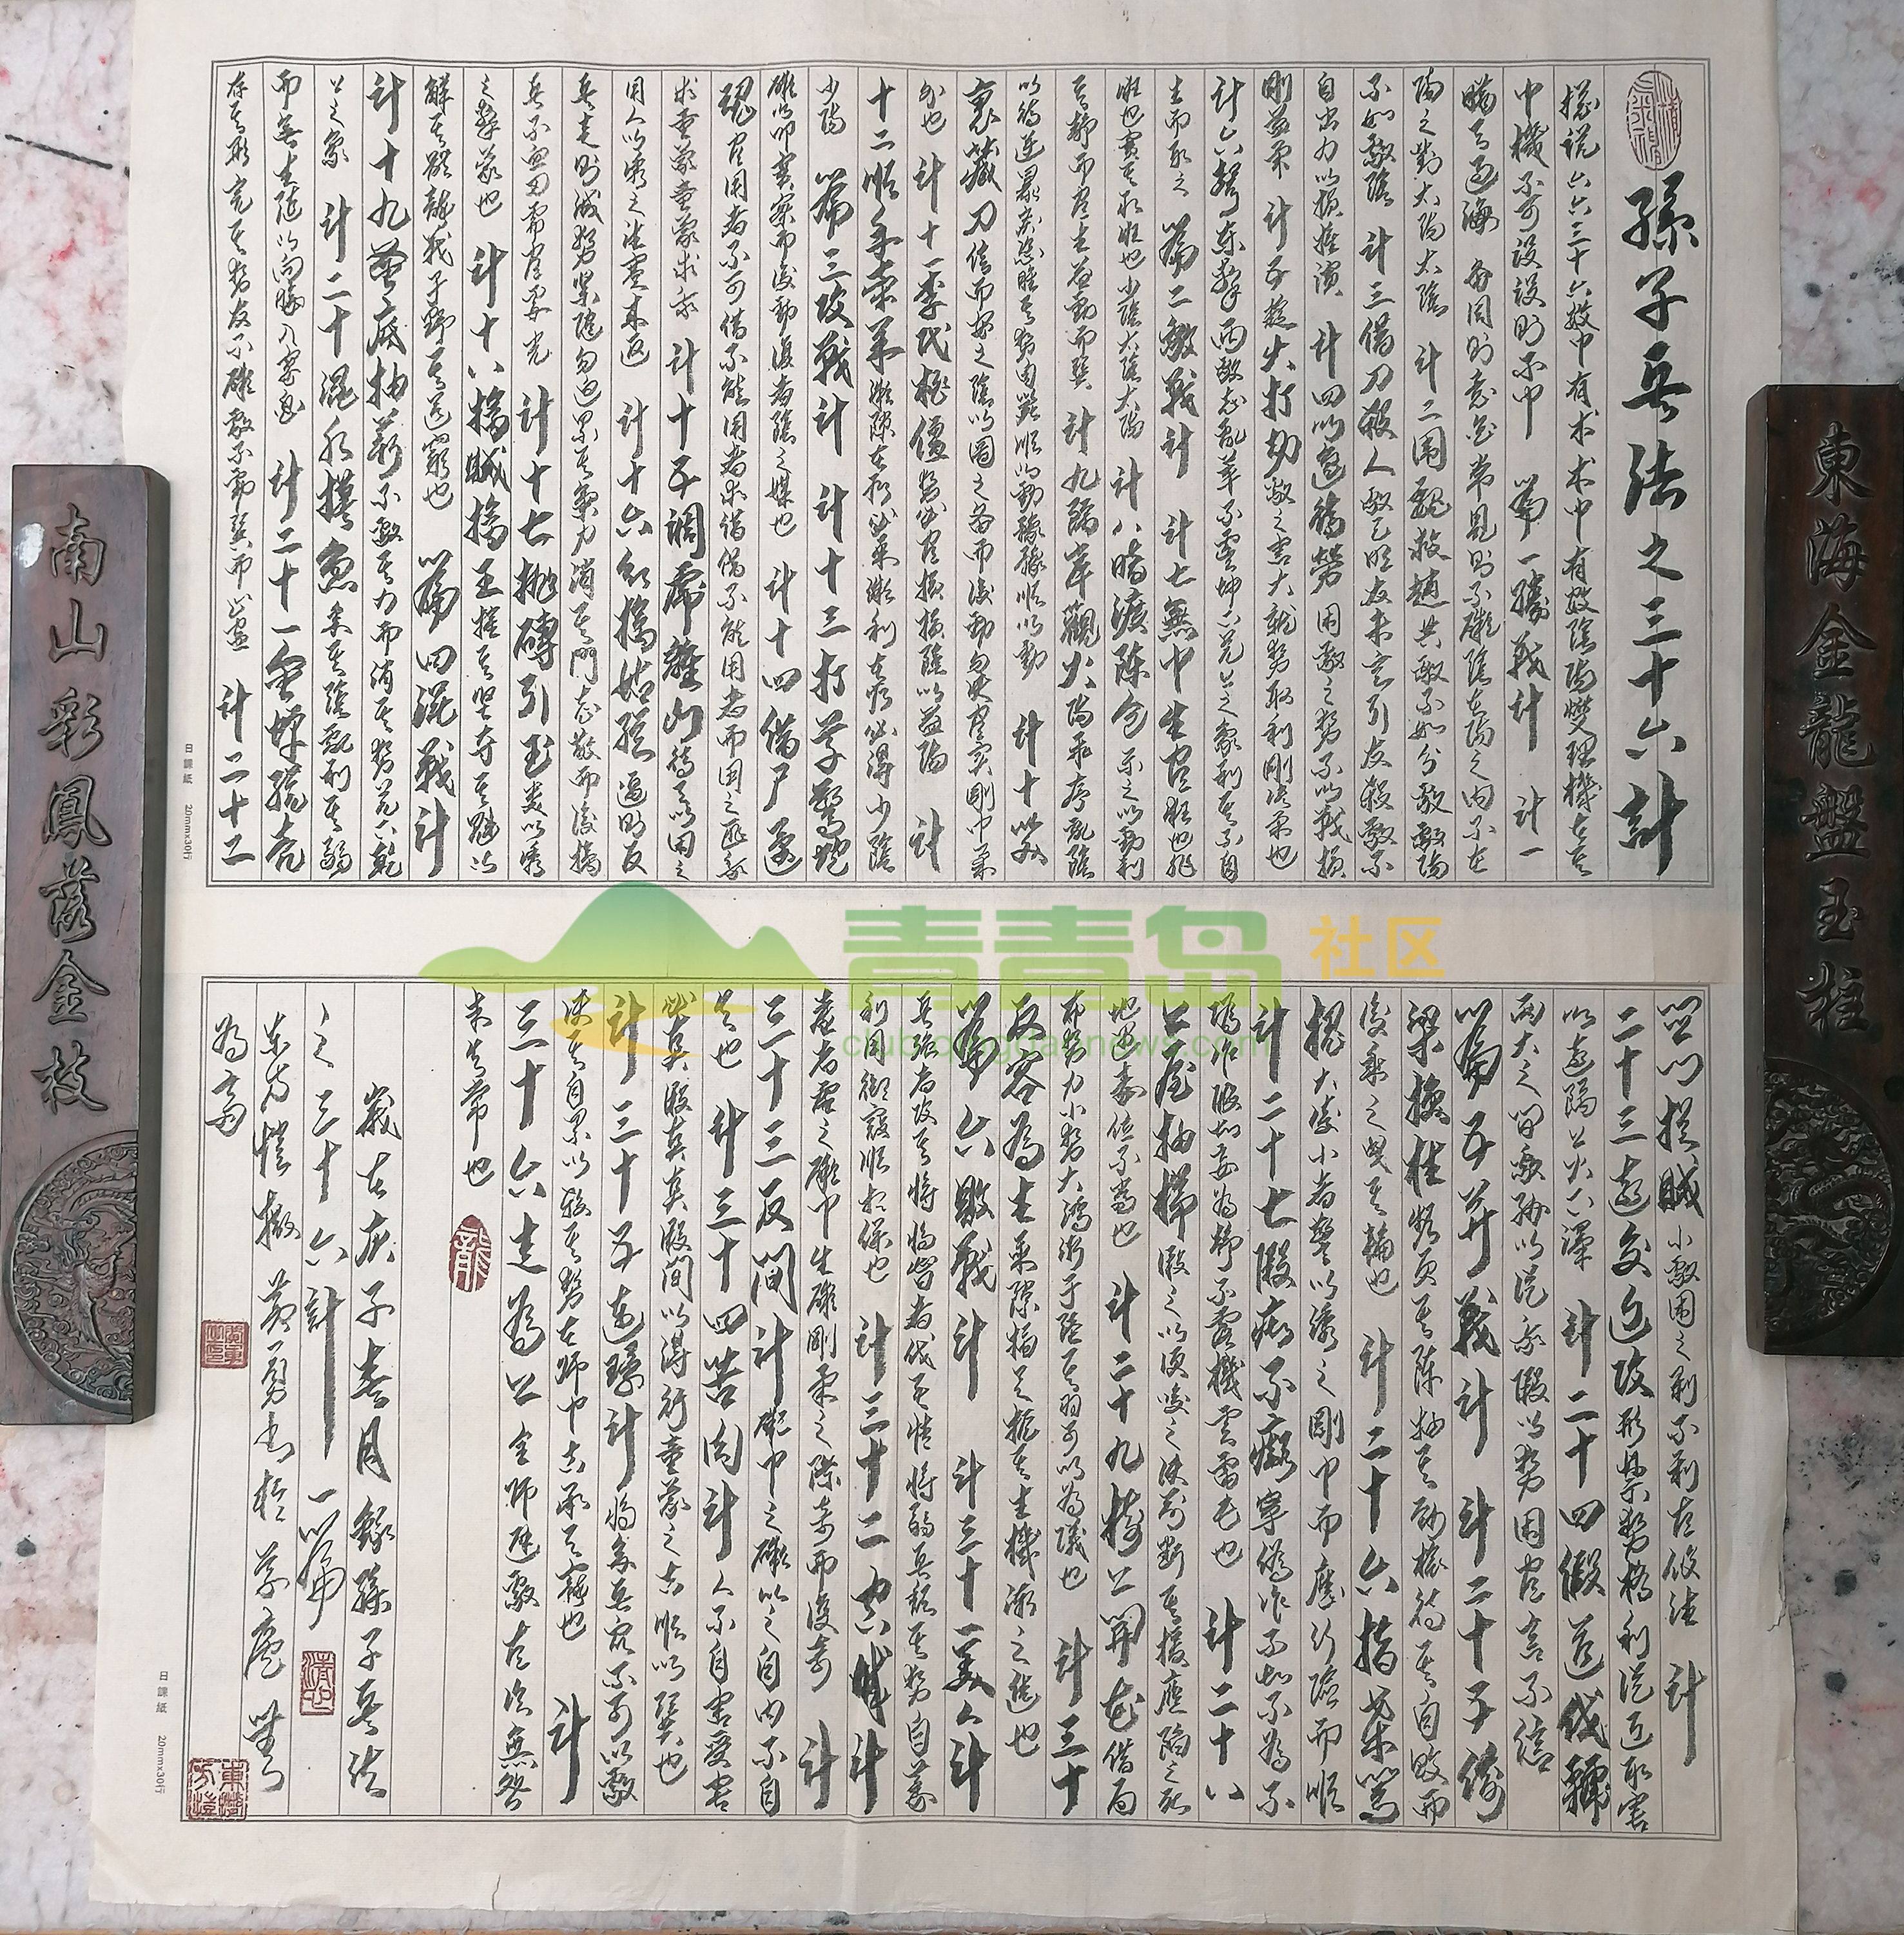 孫子兵法之三十六計
總説 六六三十六數中有术术中有數陰陽燮理機在其
中機不可設設則不中 第一勝戰計 計一
瞞天過海 備周則意怠常見則不疑陰在陽之内不在
陽之對太陽太陰 計二圍魏救趙共敵不如分敵敵陽
不如敵陰 計三借刀殺人敵已明友未定引友殺敵不
自出力以損推演 計四以逸待勞 困敵之勢不以戰損
剛益柔 計五趁火打劫敵之害大就勢取利剛决柔也
計六聲東擊西敵志亂萃不虞坤下兑上之象利其不自
主而取之 第二敵戰計 計七無中生有誑也非
誑也實其所誑也少陰太陰太陽 計八暗渡陳倉示之以動利
其静而有主益動而巽 計九隔岸觀火陽乖序亂陰
以待逆暴戾恣睢其勢自斃順以動豫豫順以動 計十笑
裏藏刀信而安之陰以圖之備而後動勿使有變剛中柔
外也 計十一李代桃僵勢必有損損陰以益陽 計
十二順手牽羊微隙在所必乘微利在所必得少陰
少陽 第三攻戰計 計十三打草驚蛇
疑以叩實察而後動復者陰之媒也 計十四借尸還
魂有用者不可借不能用者求借借不能用者而用之匪我
求童蒙童蒙求我 計十五調虎離山待天以困之
用人以誘之往蹇來返 計十六欲擒姑縱逼則反
兵走則减勢緊隨勿迫累其氣力消其鬥志散而後擒
兵不血刃需有孚光 計十七抛磚引玉類以誘
之擊蒙也 計十八擒賊擒王摧其堅奪其魁以
解其體龍戰于野其道窮也 第四混戰計
計十九釜底抽薪不敵其力而消其勢兑下乾
上之象 計二十混水摸魚乘其陰亂利其弱
而無主隨以向晦入宴息 計二十一金蟬脱殼
存其形完其勢友不疑敵不動巽而止蠱 計二十二
關門捉賊小敵困之剥不利有攸往 計
二十三遠交近攻形禁勢格利從近取害
以遠隔上火下澤 計二十四假道伐虢
兩大之間敵脅以從我假以勢困有言不信
第五并戰計 計二十五偷
梁换柱頻更其陣抽其勁旅待其自敗而
後乘之曳其輪也 計二十六指桑駡
槐大凌小者警以誘之剛中而應行險而順
計二十七假痴不癲寧僞作不知不爲不
僞作假知妄爲静不露機雲雷屯也 計二十八
上屋抽梯假之以便唆之使前斷其援應陷之死
地遇毒位不當也 計二十九樹上開花借局
布勢力小勢大鴻漸于陸其羽可以爲儀也 計三十
反客爲主乘隙插足扼其主機漸之進也
第六敗戰計 計三十一美人計
兵强者攻其將將智者伐其情將弱兵頽其勢自萎
利用御寇順相保也 計三十二空城計
虚者虚之疑中生疑剛柔之際奇而復奇 計
三十三反間計疑中之疑比之自内不自
失也 計三十四苦肉計人不自害受害
必真假真真假間以得行童蒙之吉順以巽也
計三十五連環計將多兵衆不可以敵
使其自累以殺其勢在師中吉承天寵也 計
三十六走爲上全師避敵左次無咎
未失常也
歲在庚子春月録孫子兵法
之三十六計一篇
爲之
東海金龍盤玉柱
南山彩鳳落金枝
日課紙 20mm×30行
日課紙 20mm×30行
青青岛社区
club.qingdaonews.com